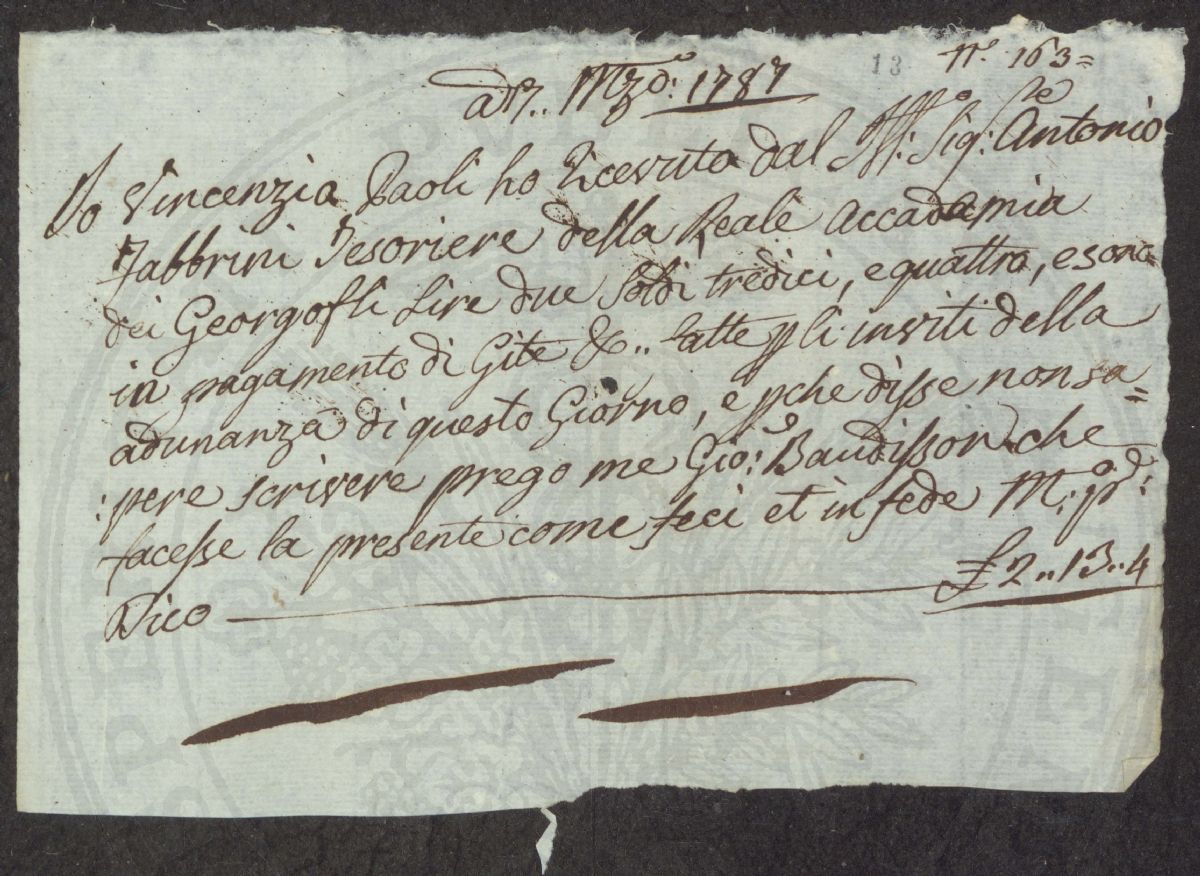 13 N.° 163=
Adì 7.. Mzo: 1787
Io Vincenzia Paoli ho Ricevuto dal Sig:re Antonio
Fabbrini Tesoriere della Reale Accademia
dei Georgofli Lire due Soldi tredici, e quattro, e sono
in pagamento di Gite &.. fatte p gli inviti della
adunanza di questo Giorno, e pche disse non sa=
:pere scrivere prego me Gio: Baudisson che
facesse la presente come feci et in fede M: pd:
Dico £2..13..4